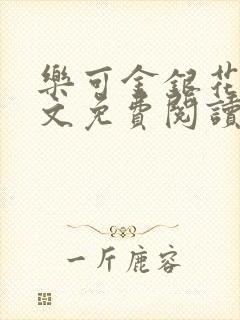 樂可金銀花
文免費閱讀
一斤鹿容